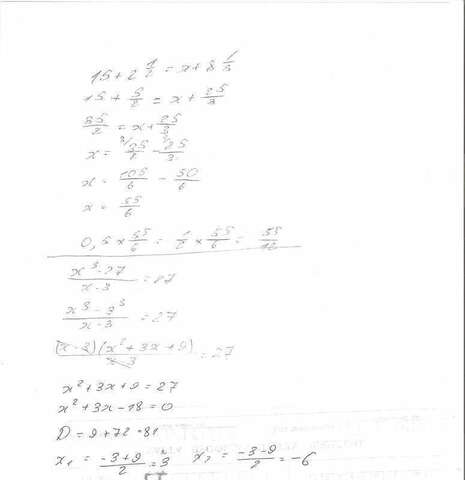 15 + 2 1/2 = x + 8 1/3
15 + 5/2 = x + 25/3
35/2 = x + 25/3
x = 35/2 - 25/3
x = 105/6 - 50/6
x = 55/6
0,5 × 55/6 = 1/2 × 55/6 = 55/12
x³-27/x-3 = 27
x³-3³/x-3 = 27
(x-3)(x²+3x+9)/x-3 = 27
x²+3x+9=27
x²+3x-18=0
D=9+72=81
x₁ = -3+9/2 = 3 x₂ = -3-9/2 = -6